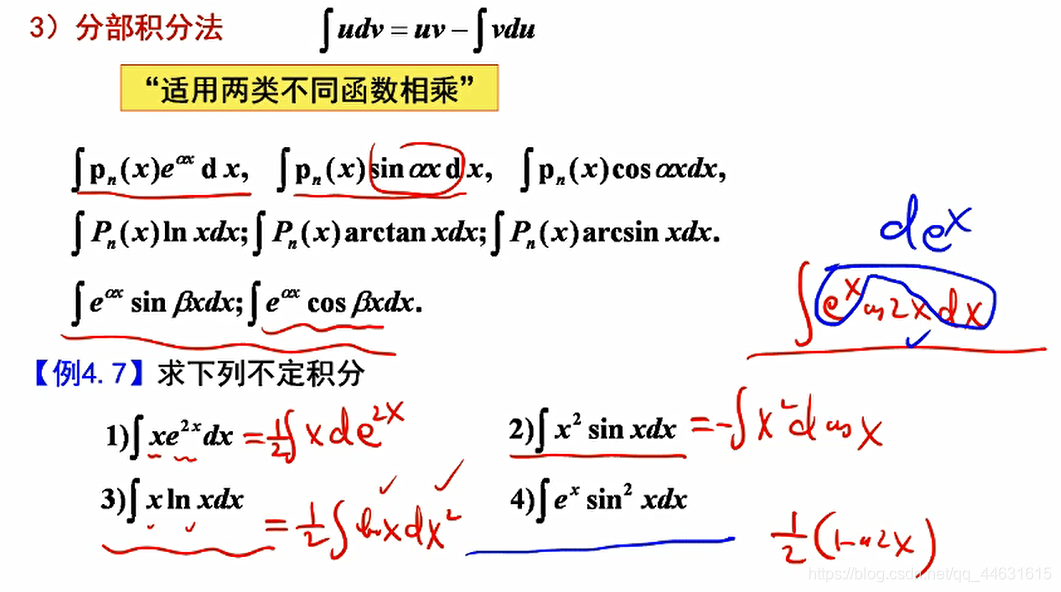 3）分部积分法 ∫udv = uv − ∫vdu
“适用两类不同函数相乘”
∫pₙ(x)e^{αx} d x, ∫pₙ(x)sin αx d x, ∫pₙ(x)cos αxdx,
∫Pₙ(x)ln xdx; ∫Pₙ(x)arctan xdx; ∫Pₙ(x)arcsin xdx.
de^x
∫e^{αx} sin βxdx; ∫e^{αx} cos βxdx.
∫e^x cos2x dx
【例4.7】求下列不定积分
1)∫xe^{2x}dx = ½∫x de^{2x}
2)∫x² sin xdx = −∫x² d cos x
3)∫x ln xdx = ½∫ln x dx²
4)∫e^x sin² xdx
½(1−cos2x)
https://blog.csdn.net/qq_44631615